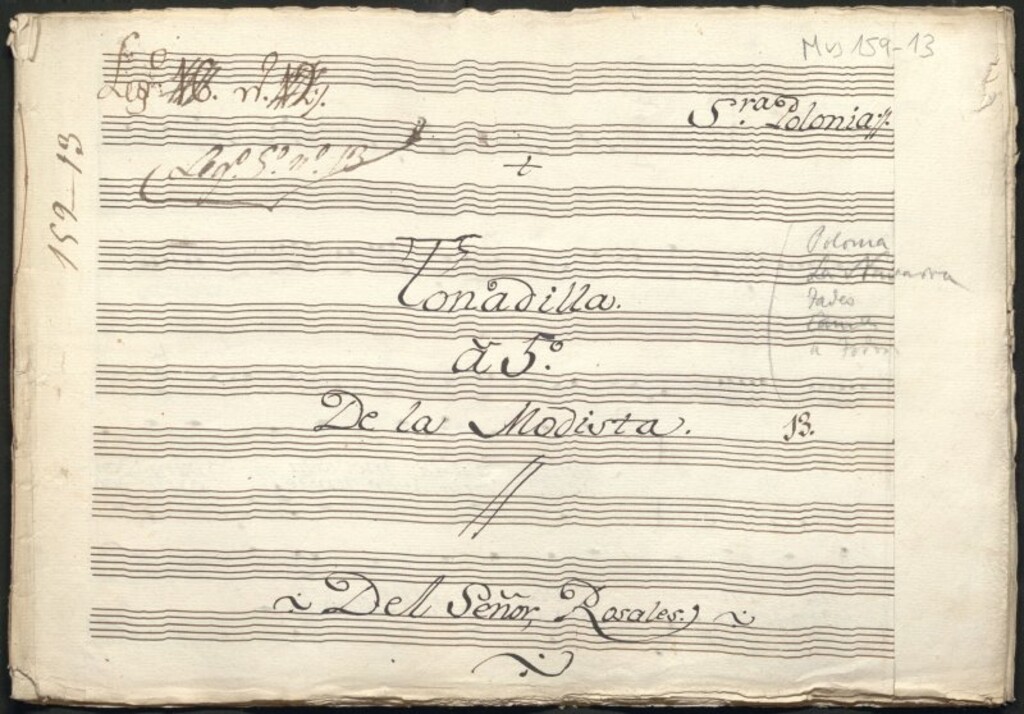 Mus 159-13
Leg.º n.º
S.ra Polonia
Leg.º 5.º n.º 13
159-13
Tonadilla.
à 5.º
De la Modista.
13.
Polonia
La Navarra
Tadeo
Del Señor, Rosales.